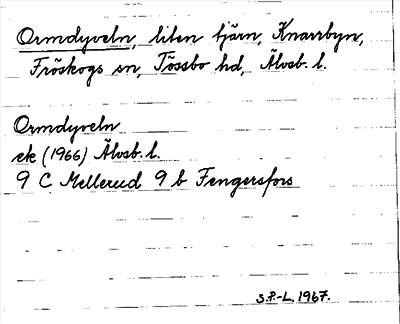 Ormdyveln, liten tjärn, Knarrbyn,
Fröskogs sn, Tössbo hd, Älvsb. l.
Ormdyveln
ek (1966) Älvsb. l.
9 C Mellerud 9 b Fengersfors
S.P.-L. 1967.